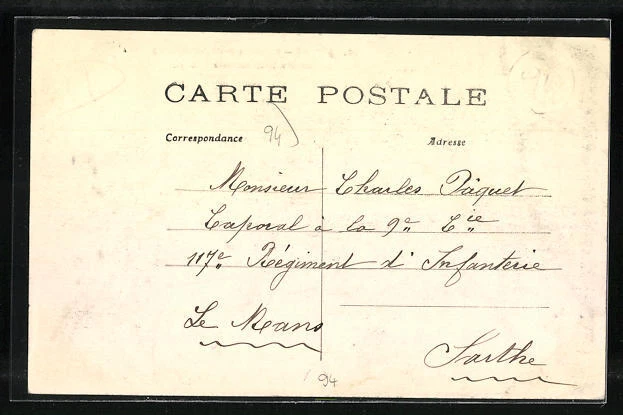 CARTE POSTALE
Correspondance
94
Adresse
Monsieur Charles Pâquet
Caporal à la 9e Cie
117e Régiment d'Infanterie
Le Mans
Sarthe
94